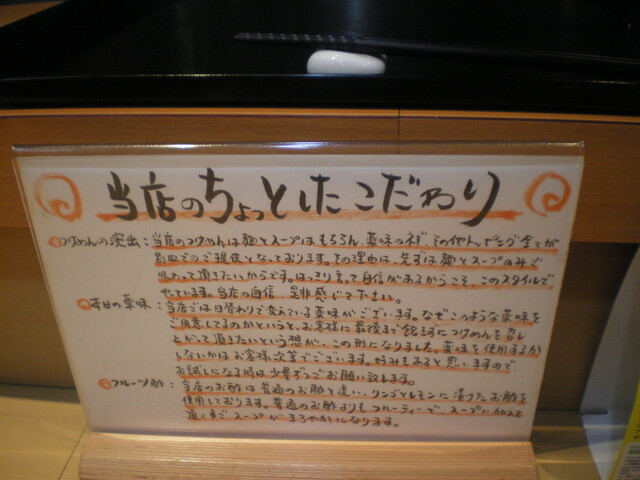 当店のちょっとしたこだわり
つけめんの演出：当店のつけめんは麺とスープはもちろん、薬味のネギその他トッピング全てが
別皿でのご提供となっております。その理由は、先ずは麺とスープのみで
味わって頂きたいからです。はっきり言って自信があるからこそ、このスタイルで
やっています。当店の自信、是非感じて下さい。
毎日の薬味：当店では日替わりで変えている薬味がございます。なぜこのような薬味を
ご用意してるのかというと、お客様に最後まで飽きずにつけめんを召し
上がって頂きたいという想いが、この形になりました。薬味を使用するか
しないかはお客様次第でございます。好みもあると思いますので
お試しになる時は少量ずつご お願い致します。
フルーツ酢：当店のお酢は普通のお酢と違い、リンゴとレモンに漬けたお酢を
使用しております。普通のお酢よりもフルーティーで、スープに加えて
頂く事でスープがまろやかになります。